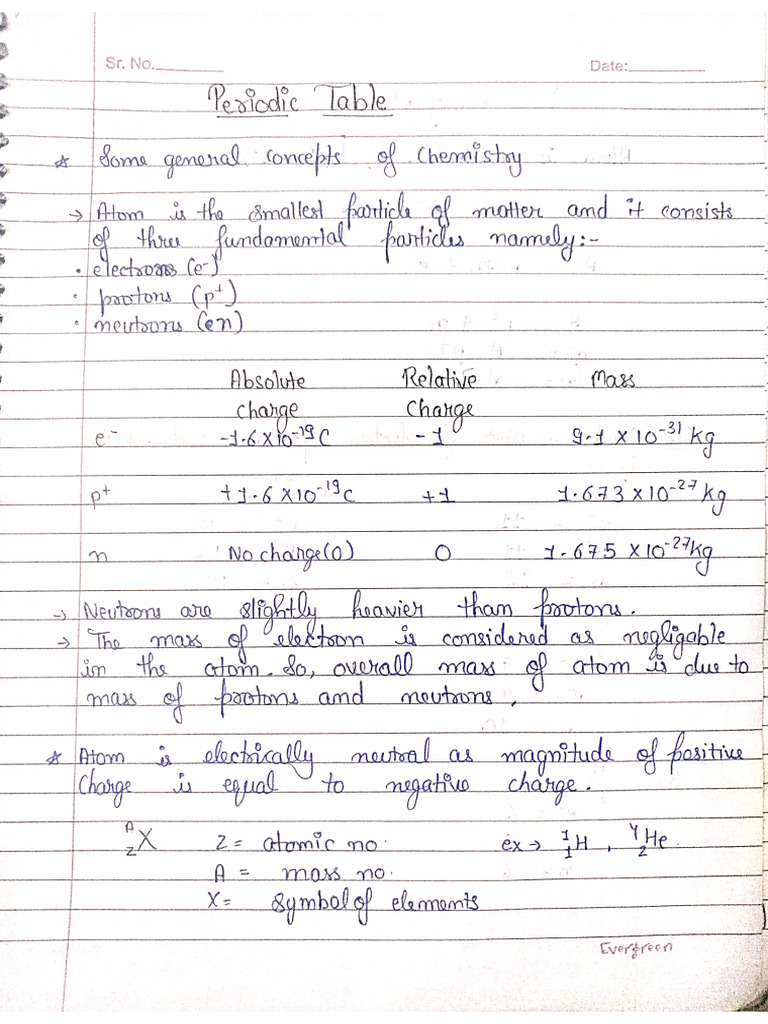 Sr. No.
Date:
Periodic Table
* Some general concepts of Chemistry
→ Atom is the smallest particle of matter and it consists
of three fundamental particles namely:-
• electrons (e⁻)
• protons (p⁺)
• neutrons (en)
Absolute Relative Mass
charge Charge
e⁻ -1.6×10⁻¹⁹C -1 9.1 × 10⁻³¹ kg
p⁺ +1.6×10⁻¹⁹C +1 1.673×10⁻²⁷ kg
n No charge(0) 0 1.675 ×10⁻²⁷kg
→ Neutrons are slightly heavier than protons.
→ The mass of electron is considered as negligable
in the atom. So, overall mass of atom is due to
mass of protons and neutrons.
* Atom is electrically neutral as magnitude of positive
Charge is equal to negative charge.
ᴬ₂X Z = atomic no. ex → ¹₁H , ⁴₂He.
A = mass no.
X = symbol of elements
Evergreen